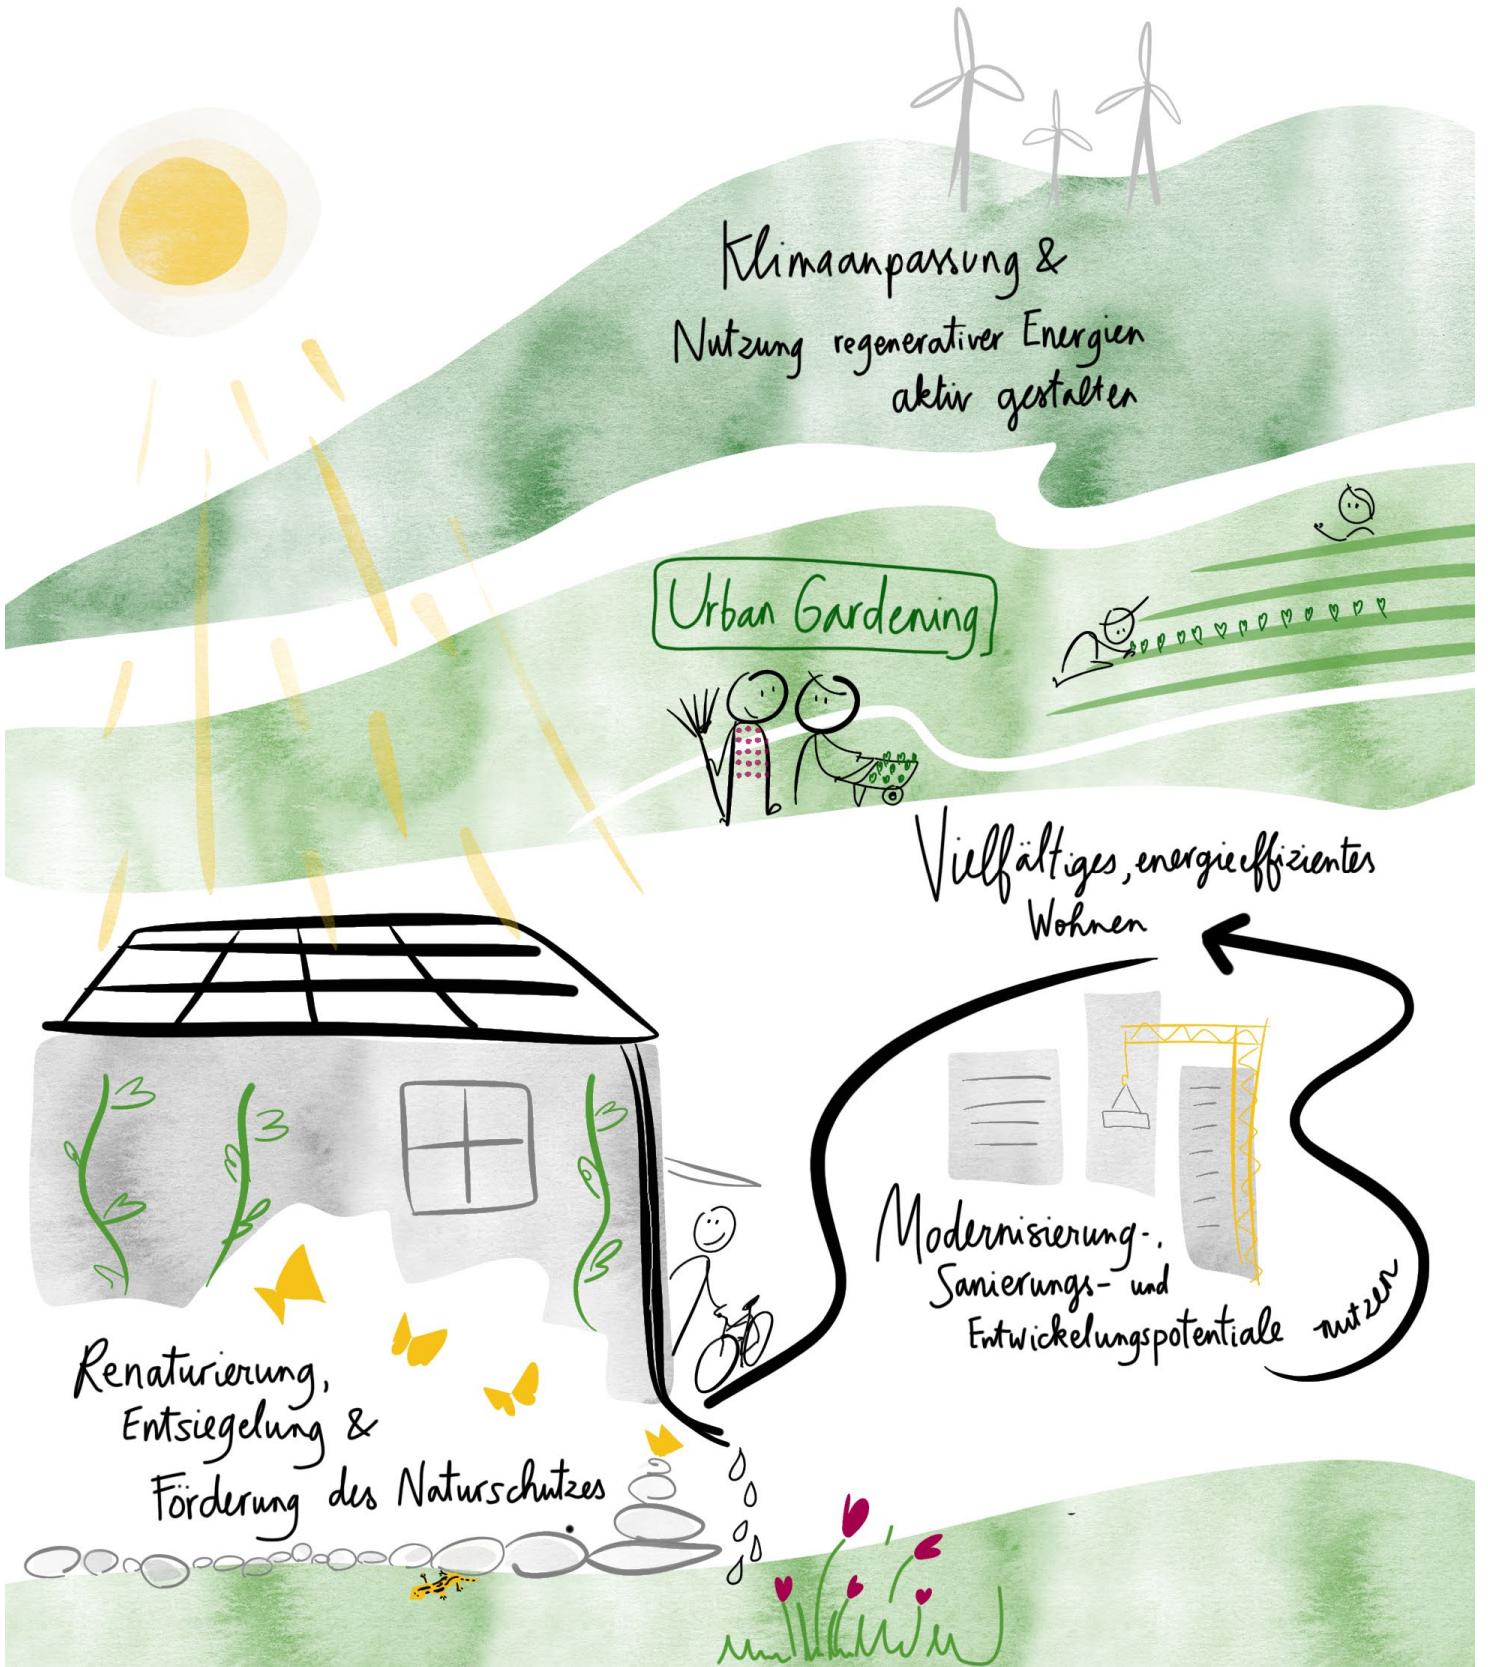 Klimaanpassung &
Nutzung regenerativer Energien
aktiv gestalten
Urban Gardening
Vielfältiges, energieeffizientes
Wohnen
Modernisierung-,
Sanierungs- und
Entwickelungspotentiale nutzen
Renaturierung,
Entsiegelung &
Förderung des Naturschutzes